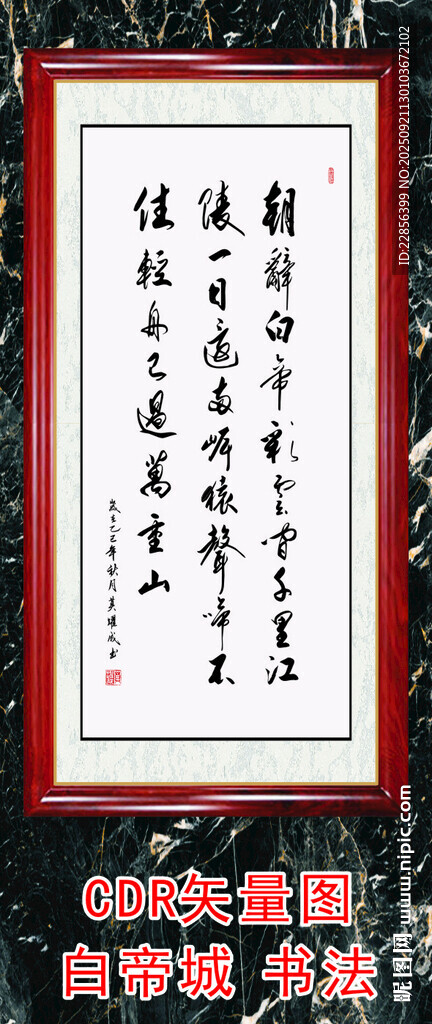 朝辭白帝彩雲间千里江
陵一日還两岸猿聲啼不
住輕舟已過萬重山
岁在乙巳年秋月黄耀成书
CDR矢量图
白帝城 书法
ID:22856399 NO:20250921130103672102
昵图网 www.nipic.com